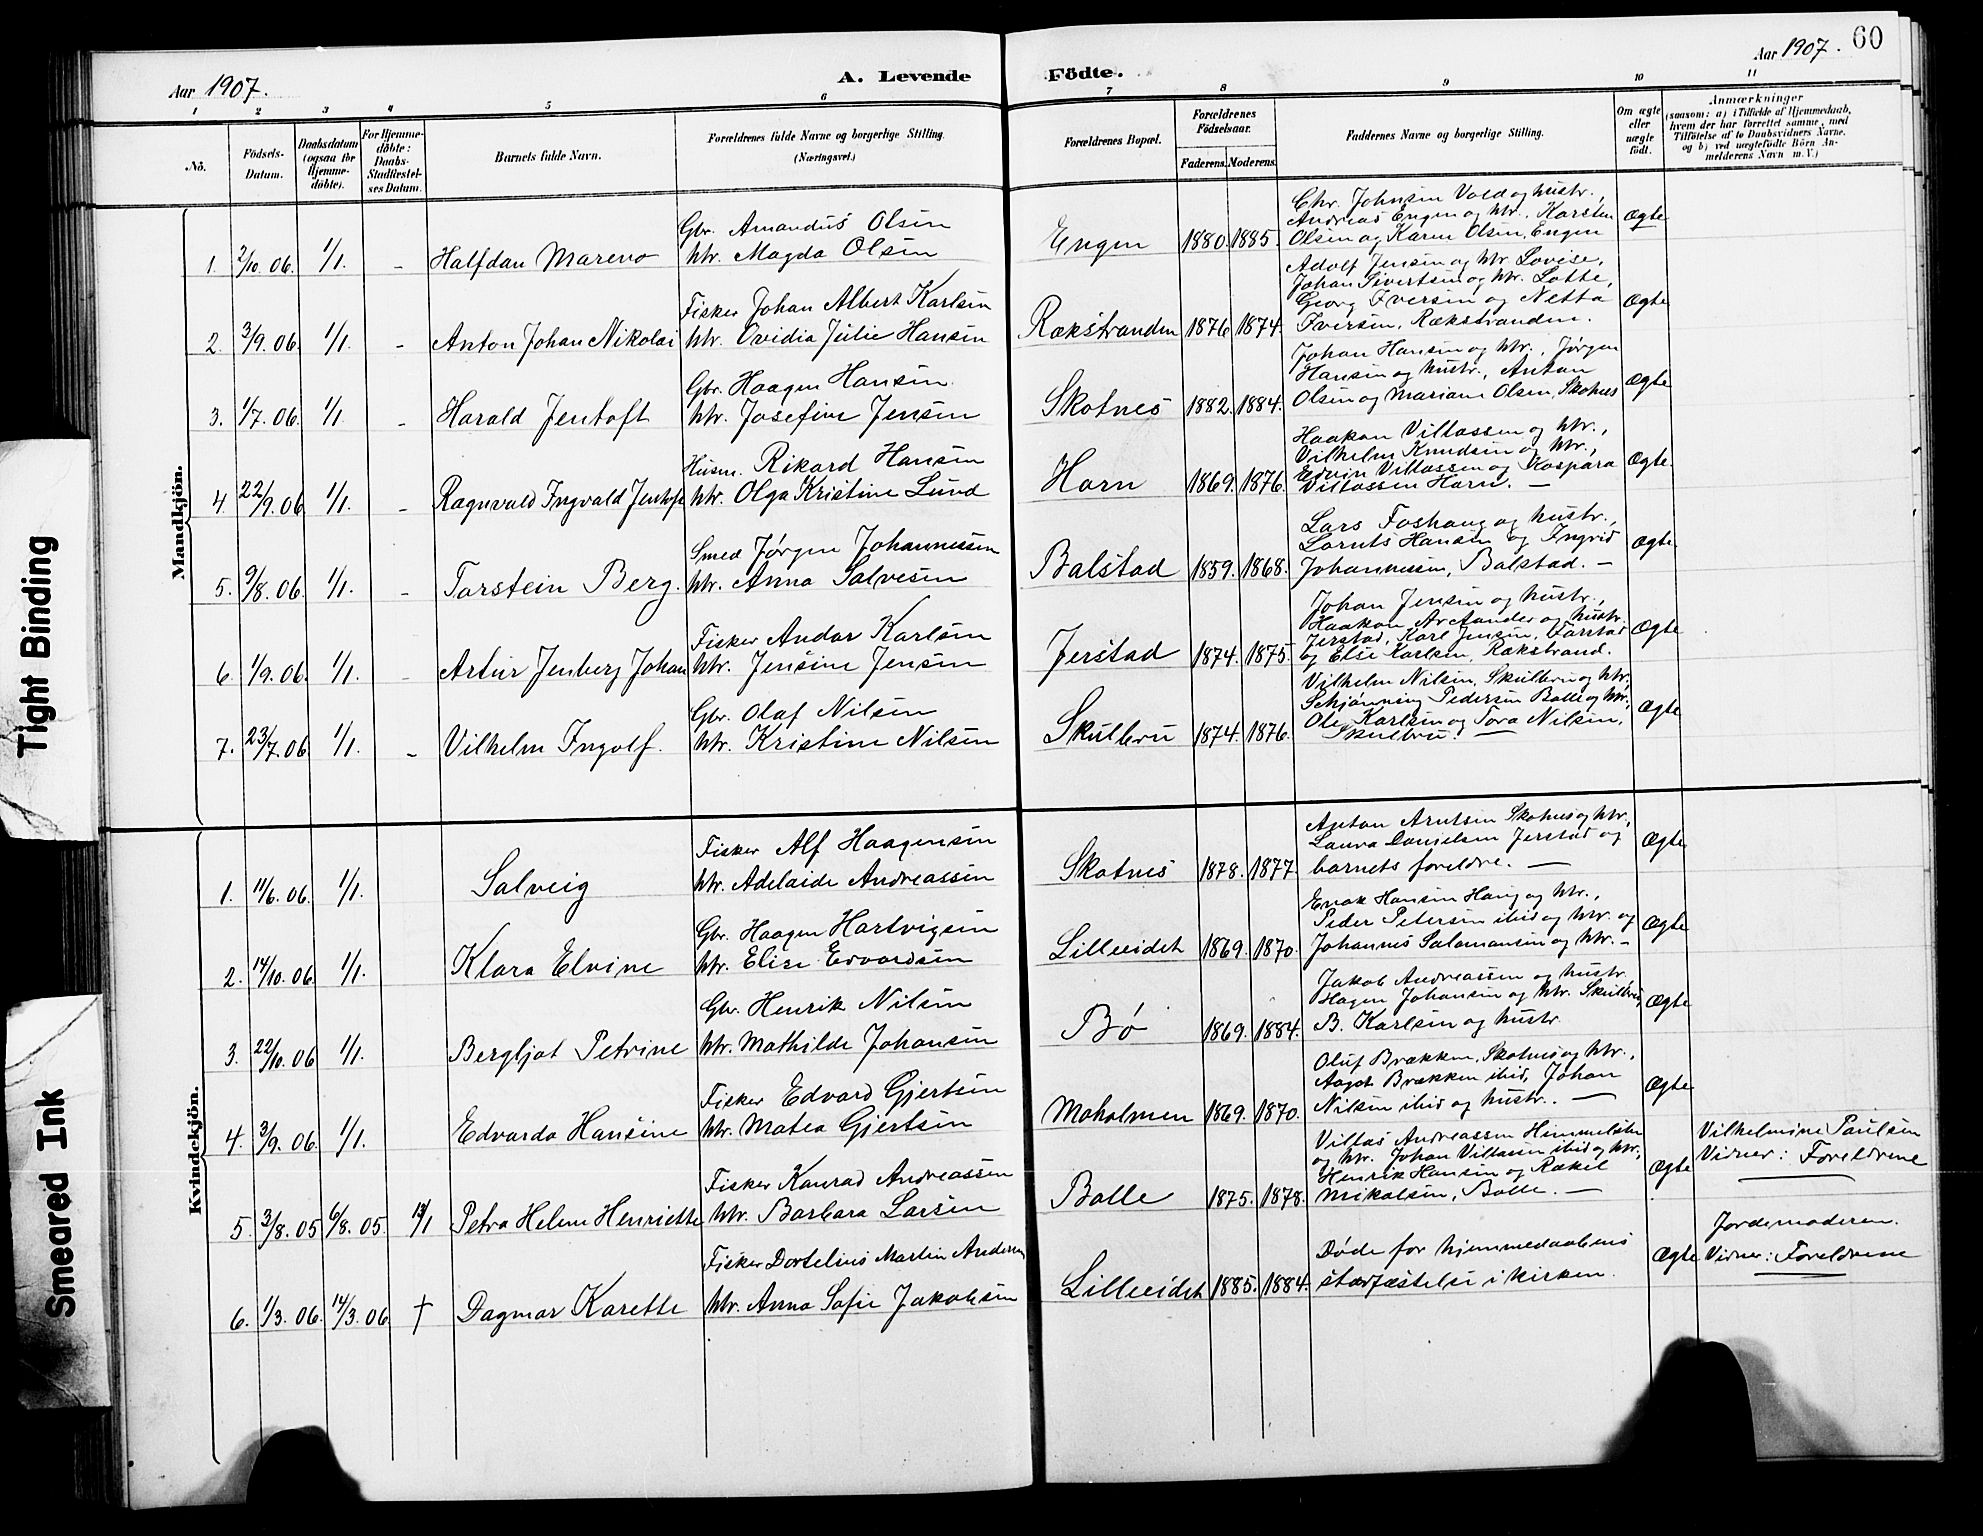 Aar 1907.
A. Levende Födte.
Aar 1907.
60
1 2 3 4 5 6 7 8 9 10 11
No.
Födsels-Datum.
Daabsdatum (ogsaa for Hjemmedöbte).
For Hjemmedöbte: Daabs-Stadfæstelses Datum.
Barnets fulde Navn.
Forældrenes fulde Navne og borgerlige Stilling. (Næringsvei.)
Forældrenes Bopæl.
Forældrenes Födselsaar.
Faderens. Moderens.
Faddernes Navne og borgerlige Stilling.
Om ægte eller uægte födt.
Anmærkninger
(saasom: a) i Tilfælde af Hjemmedaab, hvem der har forrettet samme, med Tilföielse af to Daabsvidners Navne, og b) ved uægtefödte Börn Anmelderens Navn m. V.)
Mandkjön.
Gbr. Amandus Olsen
1. 2/10. 06. 1/1. - Halfdan Mareno Htr. Magda Olsen Engen 1880. 1885.
Chr. Johnsen Vold og hustr.,
Andreas Engen og htr., Karsten
Olsen og Karen Olsen, Engen
Ægte
Fisker Johan Albert Karlsen
2. 3/9. 06. 1/1. - Anton Johan Nikolai htr. Ovidia Julie Hansen Rækstranden 1876 1874.
Adolf Jensen og htr Lovise,
Johan Sivertsen og htr. Lotte,
Georg Iversen og Netta
Iversen, Rækstranden.
Ægte
Gbr. Haagen Hansen.
3. 1/7. 06. 1/1. - Harald Jentoft htr. Josefine Jensen Skotnes 1882. 1884.
Johan Hansen og htr., Jørgen
Hansen og hustr., Anton
Olsen og Mariane Olsen, Skotnes
Ægte
Husm. Rikard Hansen
4. 22/9. 06 1/1. - Ragnvald Ingvald Jentoft htr. Olga Kristine Lund Horn 1869. 1876.
Haakon Villassen og htr.,
Vilhelm Knudsen og htr.,
Edvin Villassen og Kaspara
Villassen Horn. —
Ægte.
Smed Jørgen Johannessen
5. 9/8. 06. 1/1. - Torstein Berg. htr. Anna Salvesen Balstad 1859. 1868.
Lars Foshaug og hustr.,
Lornts Hansen og Ingrid
Johannessen, Balstad. —
Ægte.
Fisker Andor Karlsen
6. 1/9. 06. 1/1. - Artur Jenberg Johan htr. Jensine Jensen Jerstad 1874. 1875.
Johan Jensen og hustr.,
Haakon Arctander og hustr.
Jerstad, Karl Jensen,
og Elsi Karlsen, Rækstrand.
Ægte
Gbr. Olaf Nilsen
7. 23/7. 06 1/1. - Vilhelm Ingolf. htr. Kristine Nilsen Skulbru 1874. 1876.
Vilhelm Nilsen, Skulbru og htr.
Schjønning Pedersen Bolle og htr.,
Ole Karlsen og Tora Nilsen,
Skulbru. —
Ægte
Kvindekjön.
Fisker Alf Haagensen
1. 14/6. 06. 1/1. Solveig htr. Adelaide Andreassen Skotnes 1878. 1877.
Anton Arntsen Skotnes og htr.,
Laura Danielsen Jerstad og
barnets foreldre. —
Ægte
Gbr. Haagen Hartvigsen
2. 14/10. 06 1/1. Klara Elvine htr. Elise Edvardsen Lilleeidet 1869. 1870.
Enok Hansen Haug og htr.,
Peder Petersen ibid og htr. og
Johannes Salamonsen og htr. -
Ægte
Gbr. Henrik Nilsen
3. 22/10. 06 1/1. Bergljot Petrine htr. Mathilde Johansen Bø 1869. 1884.
Jakob Andreassen og hustr.
Hagen Johansen og htr. Skulbru,
B. Karlsen og hustr.
Ægte
Fisker Edvard Gjertsen
4. 3/9. 06. 1/1. Edvarda Hansine htr. Matea Gjertsen Moholmen 1869. 1870.
Oluf Brækken, Skotnes og htr.,
Aagot Brækken ibid, Johan
Nilsen ibid og hustr. —
Ægte
Fisker Konrad Andreassen
5. 3/8. 05 6/8. 05. 13/1 Petra Helene Henriette htr. Barbara Larsen Bolle 1875. 1878.
Villas Andreassen
og htr. Johan Villassen ibid og htr.,
Henrik Hansen og Rakel
Mikalsen, Bolle. —
Ægte
Vilhelmine Paulsen
Vidner: Foreldrene
Fisker Dortelius Martin Andersen
6. 1/3. 06. 14/3. 06 † Dagmar Karette htr. Anna Sofie Jakobsen Lilleeidet 1885. 1884.
Døde før hjemmedaabens
stadfæstelse i kirken.
Ægte
Jordemoderen.
Vidner: Foreldrene
Tight Binding
Smeared Ink